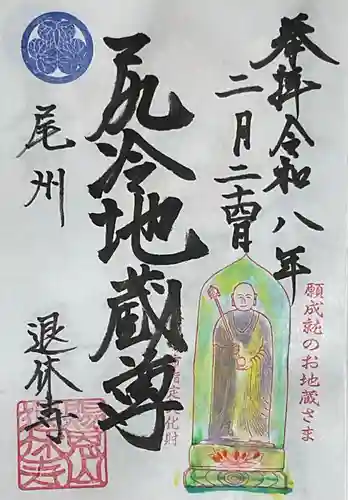 奉拝令和八年
二月二十四日
尻冷地蔵尊
尾州
退休寺
願成就のお地蔵さま